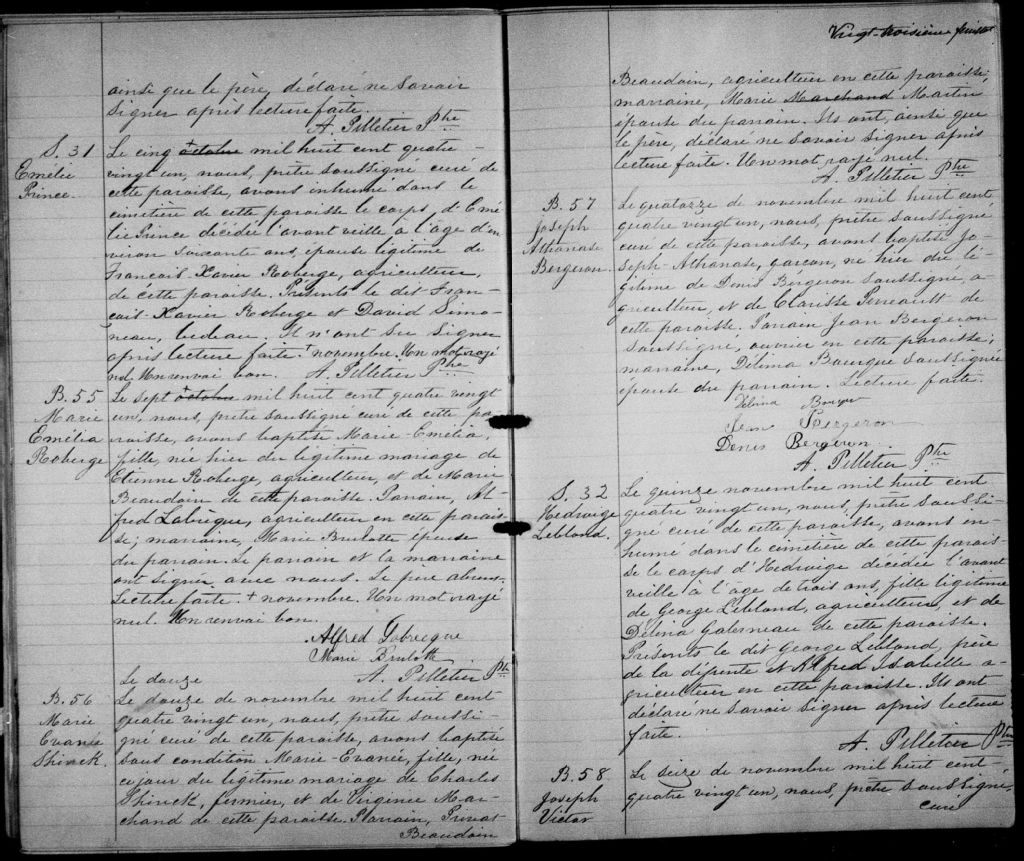 ainsi que le père, déclaré ne savoir
signer après lecture faite.
A. Pelletier Ptre
S. 31
Emélie
Prince.
Le cinq + octobre mil huit cent quatre-
vingt un, nous, prêtre soussigné curé de
cette paroisse, avons inhumé dans le
cimetière de cette paroisse le corps, d'Emé
lie Prince décédée l'avant veille à l'age d'en
viron soixante ans, épouse légitime de
Francois Xavier Roberge, agriculteur,
de cette paroisse. Présents le dit Fran-
cois-Xavier Roberge et David Simo-
neau, bedeau. Il n'ont su signer
après lecture faite. + novembre. Un mot rayé
nul. Un renvoi bon. A. Pelletier Ptre
B. 55
Marie
Emélia
Roberge
Le sept + octobre mil huit cent quatre vingt
un, nous, prêtre soussigné curé de cette pa
roisse, avons baptisé Marie-Emélia,
fille, née hier du légitime mariage de
Etienne Roberge, agriculteur, et de Marie
Beaudoin de cette paroisse. Parain, Al-
fred Labrèque, agriculteur en cette parois
se; marraine, Marie Brulotte épouse
du parain. Le parain et la marraine
ont signé avec nous. Le père absent.
Lecture faite. + novembre. Un mot rayé
nul. Un renvoi bon.
Alfred Labrecque
Marie Brulotte
A. Pelletier Ptre
Le douze
B. 56
Marie
Evanée
Shinck.
Le douze de novembre mil huit cent
quatre vingt un, nous, prêtre soussi-
gné curé de cette paroisse, avons baptisé
sous condition Marie-Evanée, fille, née
ce jour du légitime mariage de Charles
Shinck, fermier, et de Virgenee Mar-
chand de cette paroisse. Parrain, Privat
Beaudoin
Vingt-troisième feuillet
Beaudoin, agriculteur en cette paroisse;
marraine, Marie Marchand Martin
épouse du parrain. Ils ont, ainsi que
le père, déclaré ne savoir signer après
lecture faite. Un mot rayé nul.
A. Pelletier Ptre
B. 57
Joseph
Athanase
Bergeron.
Le quatorze de novembre mil huit cent
quatre vingt un, nous, prêtre soussigné
curé de cette paroisse, avons baptisé Jo-
seph-Athanase, garcon, né hier du lé-
gitime de Denis Bergeron soussigné, a
griculteur, et de Clarisse Perreault de
cette paroisse. Parrain Jean Bergeron
soussigné, ouvrier en cette paroisse;
marraine, Délima Bourque soussignée
épouse du parrain. Lecture faite.
Délina Bourque
Jean Bergeron
Denis Bergeron
A. Pelletier Ptre
S. 32
Hedwige
Leblond.
Le quinze novembre mil huit cent
quatre vingt un, nous, prêtre soussi-
gné curé de cette paroisse, avons in-
humé dans le cimetière de cette parois-
se le corps d'Hedwige décédée l'avant
veille à l'âge de trois ans, fille légitime
de George Leblond, agriculteur, et de
Délina Galerneau de cette paroisse.
Présents le dit George Leblond, père
de la défunte et Alfred Isabelle a-
griculteur en cette paroisse. Ils ont
déclaré ne savoir signer après lecture
faite.
A. Pelletier Ptre
B. 58
Joseph
Victor
Le seize de novembre mil huit cent-
quatre vingt un, nous, prêtre soussigné,
curé